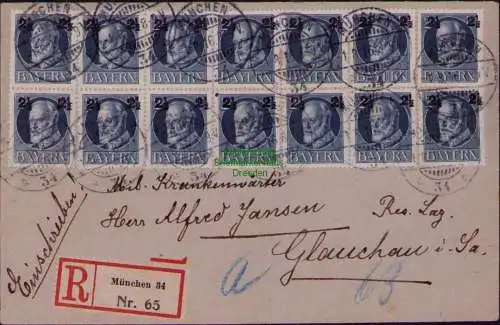 MÜNCHEN
2½ 2½ 2½ 2½ 2½ 2½ 2½
BAYERN BAYERN BAYERN BAYERN BAYERN BAYERN BAYERN
2½ 2½ 2½ 2½ 2½ 2½ 2½
BAYERN BAYERN BAYERN BAYERN BAYERN BAYERN BAYERN
34 34 34
Dresden
Mil. Krankenwärter
Einschreiben!
Herrn Alfred Jansen
Res. Laz.
Glauchau i. Sa.
R München 34
Nr. 65
a 63